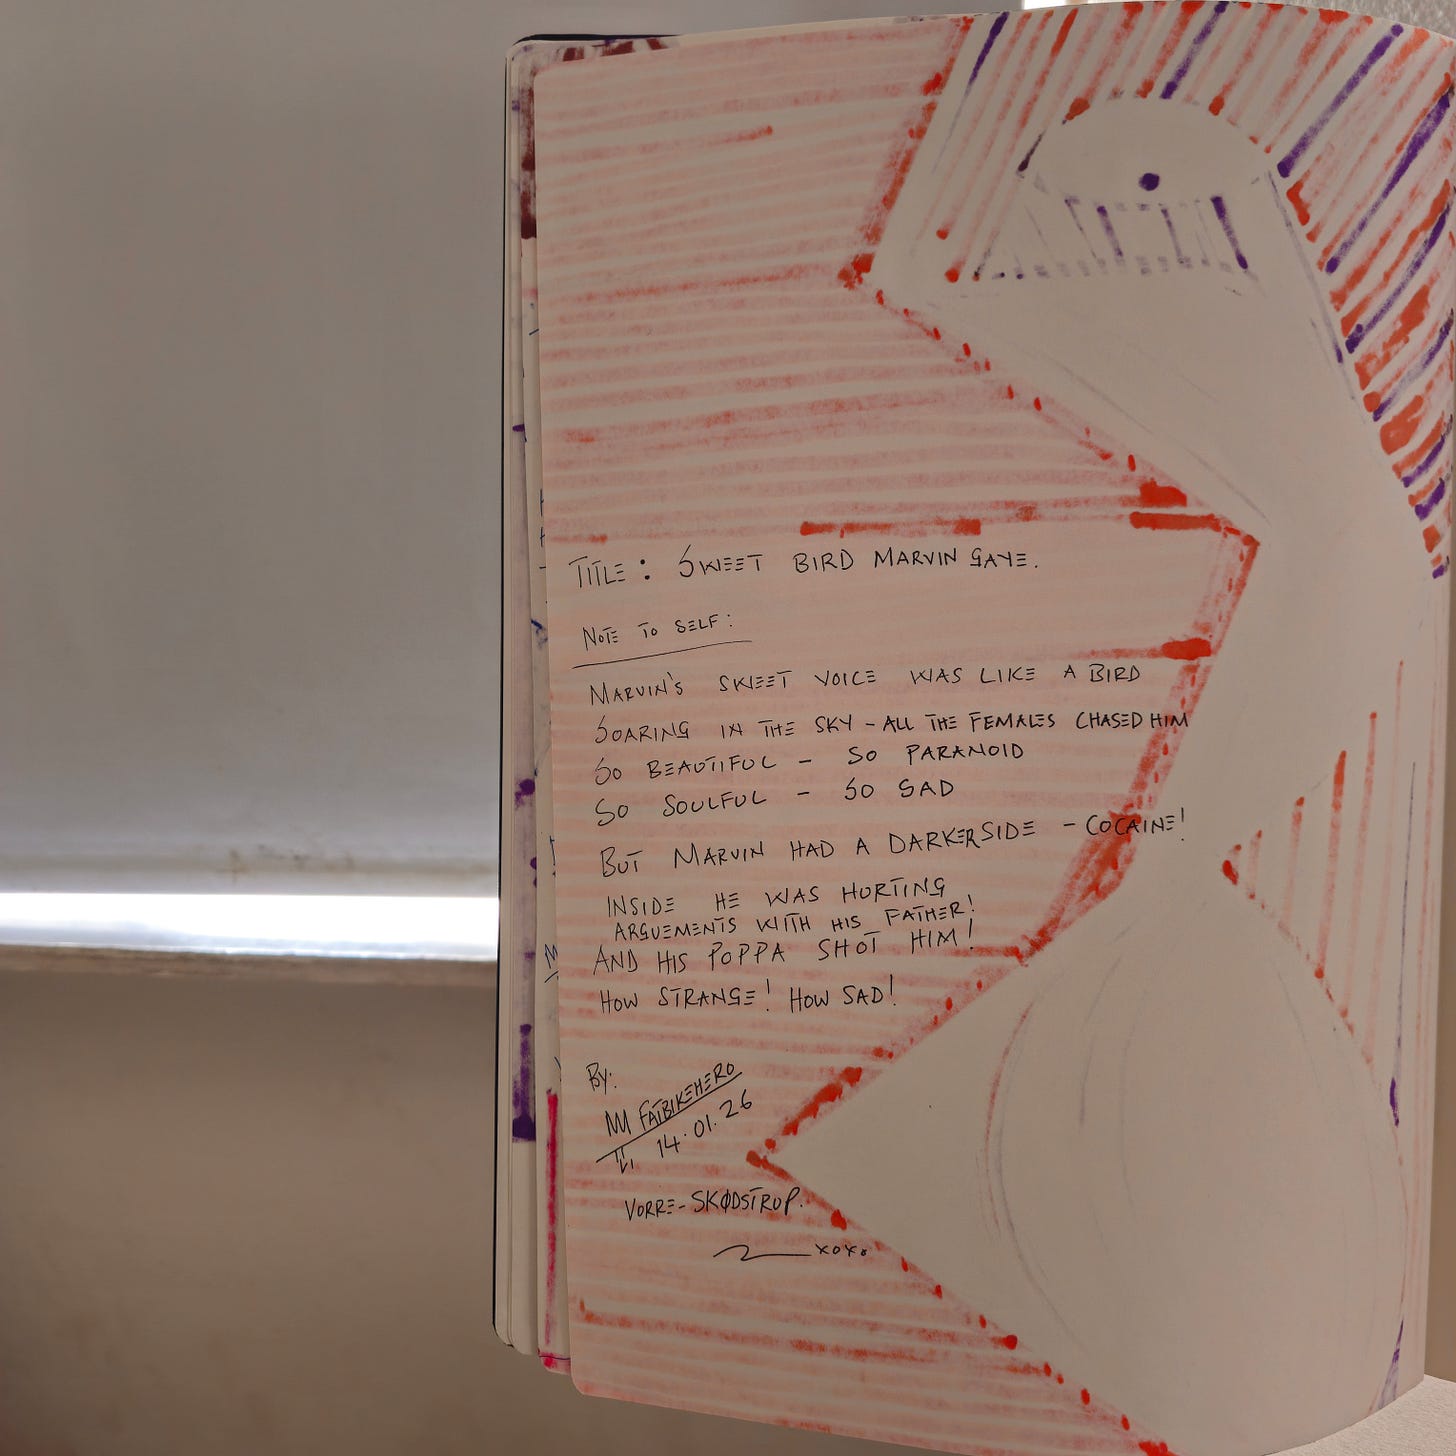 TITLE: SWEET BIRD MARVIN GAYE.
NOTE TO SELF:
MARVIN'S SWEET VOICE WAS LIKE A BIRD
SOARING IN THE SKY - ALL THE FEMALES CHASED HIM
SO BEAUTIFUL - SO PARANOID
SO SOULFUL - SO SAD
BUT MARVIN HAD A DARKER SIDE - COCAINE!
INSIDE HE WAS HURTING
ARGUEMENTS WITH HIS FATHER!
AND HIS POPPA SHOT HIM!
HOW STRANGE! HOW SAD!
BY:
FATBIKEHERO
14.01.26
VORRE-SKØDSTRUP.
XOXO